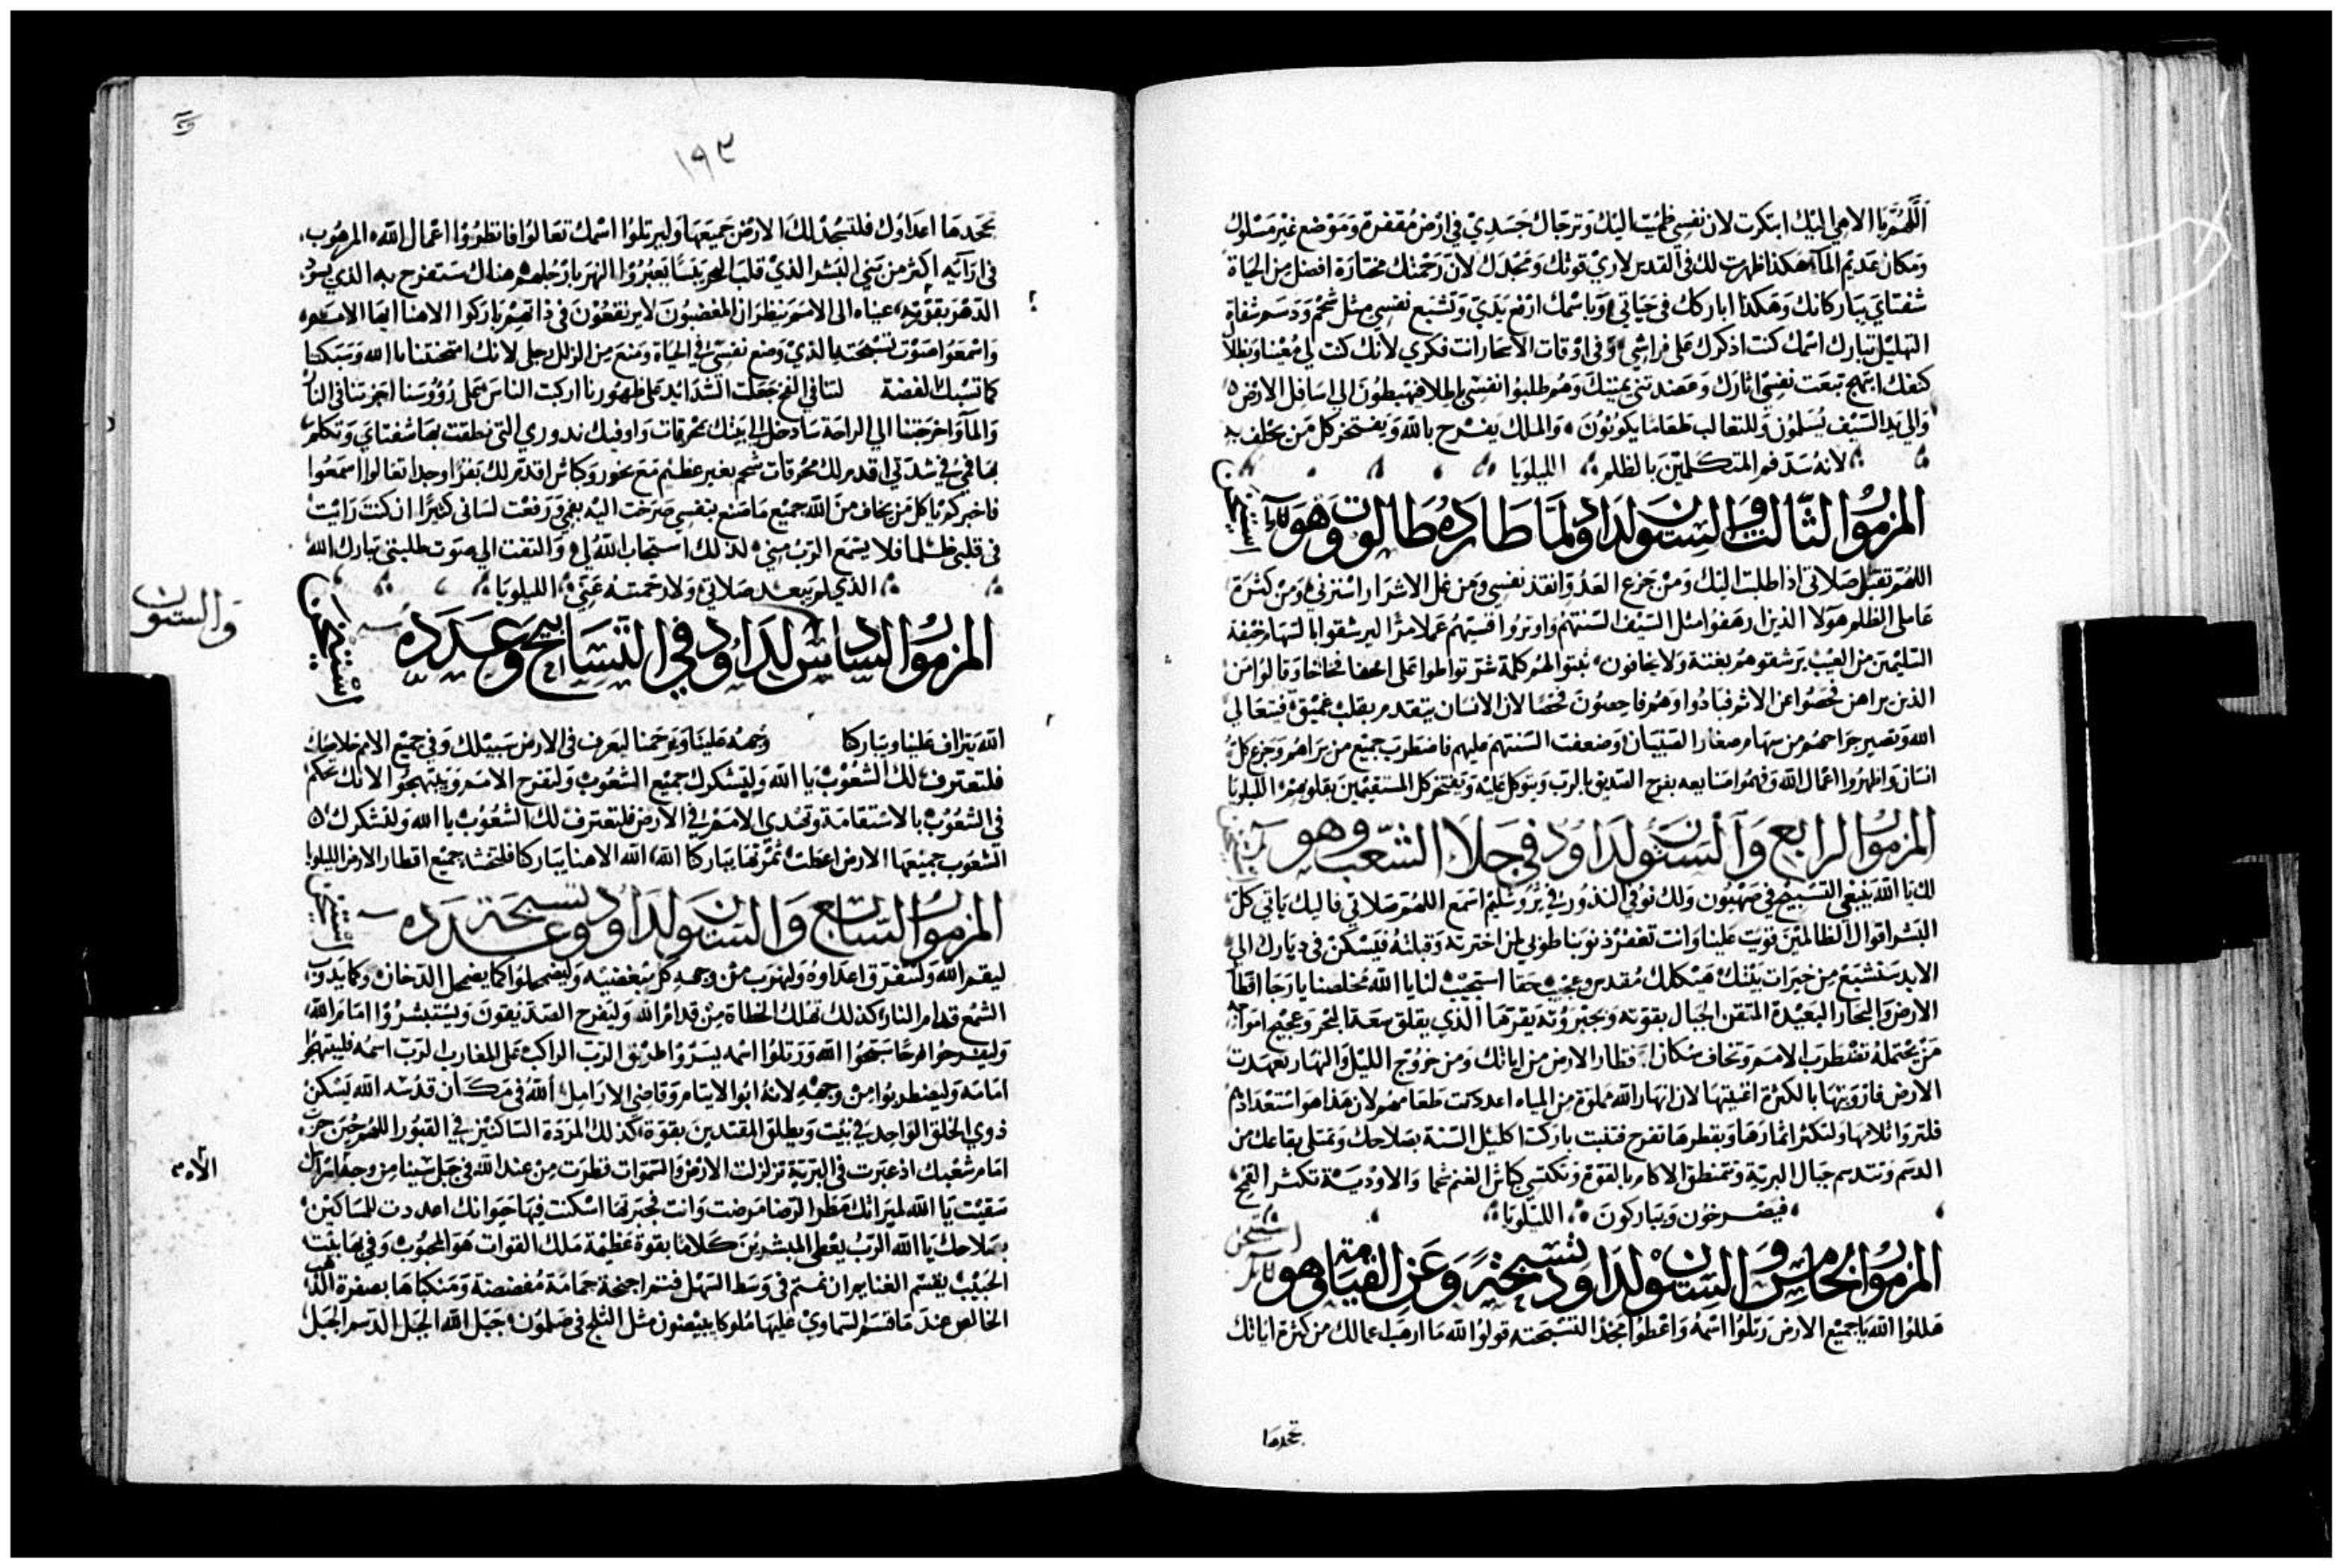 اللهم يا الاهي اليك ابتكرت لان نفسي ظميت اليك وترجاك جسدي في ارض مقفرة وموضع غير مسلوك
ومكان عديم الماء هكذا ظهرت لك في القدس لاري قوتك ومجدك لان رحمتك مختارة افضل من الحياة
شفتاي يباركانك وهكذا اباركك في حياتي وباسمك ارفع يدي وتشبع نفسي مثل شحم ودسم شفاة
التهليل تبارك اسمك كنت اذكرك على فراشي وفي اوقات الاسحار ات فكري لأنك كنت لي معينا وبظلا
كنفك ابتهج تبعت نفسي اثارك وعضدتني يمينك وهم طلبوا نفسي باطلا فيهبطون الي سافل الارض
والي يد السيف يسلمون وللثعالب طعاما يكونون والملك يفرح بالله ويفتخر كل من يحلف به
لانه سد فم المتكلمين بالظلم الليلويا
المزمور الثالث والستون لداود لما طارده طالوت وهو
اللهم تقبل صلاتي اذا طلبت اليك ومن جزع العدو انقذ نفسي ومن عمل الاشرار استرني ومن كثرة
عاملي الظلم هولا الذين ارهفوا مثل السيف السنتهم واوتروا قسيهم عملا مرا ليرشقوا بالسهام خيفة
السليمين من العيب يرشقوهم بغتة ولا يخافون ثبتوا لهم كلمة شر تواطوا على اخفا فخاخا وقالوا من
الذين يراهن فحصوا عن الاثم فبادوا وهم فاحصون فحصا لان الانسان يتقدم بقلب عميق فيتعالي
الله وتصير جراحهم من سهام صغار الصبيان وضعفت السنتهم عليهم فاضطرب جميع من يراهم وجزع كل
انسان واظهروا اعمال الله وفهموا صنايعه يفرح الصديق بالرب ويتوكل عليه ويفتخر كل المستقيمين بقلوبهم الليلويا
المزمور الرابع والستون لداود في جلا الشعب وهو
لك يا الله ينبغي التسبيح في صهيون ولك نوفي النذور في يروشليم اسمع اللهم صلاتي فاليك ياتي كل
البشر اقوال الظالمين قويت علينا وانت تغفر ذنوبنا طوبي لمن اخترته وقبلته فيسكن في ديارك الي
الابد سنشبع من خيرات بيتك هيكلك مقدس وعجيب حقا استجيب لنا يا الله مخلصنا يا رجا اقطا
الارض والبحار البعيدة المتقن الجبال بقوته وبجبروته يقرها الذي يقلق سعة البحر وعجيج امواجه
من يحتمله تضطرب الامم وتخاف سكان اقطار الارض من اياتك ومن خروج الليل والنهار تعهدت
الارض فارويتها بالكثرة اغنيتها لان انهار الله مملوة من المياه اعددت طعامهم لان هذا هو استعدادهم
فلتروا تلامها ولتكثر اثمارها وبقطرها تفرح فتنبت باركت اكليل السنة بصلاحك وتمتلي بقاعك من
الدسم وتتدسم جبال البرية وتتمنطق الاكام بالقوة وتكتسي كباش الغنم شحما والاودية تكثر القمح
فيصرخون ويباركون الليلويا
المزمور الخامس والستون لداود تسبحة وعن القيامة وهو
هللوا الله يا جميع الارض رتلوا اسمه واعطوا مجدا لتسبحته قولوا لله ما ارهب اعمالك من كثرة اياتك
تجحدها
١٩٣
تجحدها اعداوك فلتسجد لك الارض جميعها وليرتلوا اسمك تعالوا فانظروا اعمال الله المرهوب
في ارآيه اكثر من بني البشر الذي قلب البحر يبسا يعبروا النهر بارجلهم هناك ستفرح به الذي يسود
الدهر بقوته عيناه الى الامم ينظران المغضبون لا يرتفعون في ذاتهم باركوا الاهنا ايها الامم
واسمعوا صوت تسبحته الذي وضع نفسي في الحياة ومنع من الزلل رجلي لانك امتحنتنا يا الله وسبكتنا
كما تسبك الفضة لتنا في الفخ جعلت الشدائد على ظهورنا اركبت الناس على رؤوسنا اجزتنا في النار
والمآء واخرجتنا الي الراحة سادخل الي بيتك بمحرقات واوفيك نذوري التي نطقت بها شفتاي وتكلم
بها في في شدتي اقدم لك محرقات شحم بغير عظم مع بخور وكباش اقدم لك بقرا وجدا تعالوا اسمعوا
فاخبركم يا كل من يخاف من الله جميع ما صنع بنفسي صرخت اليه بفمي ورفعت لساني كثيرا ان كنت رايت
في قلبي ظلما فلا يسمع الرب مني لذلك استجاب الله لي والتفت الي صوت طلبتي تبارك الله
الذي لم يبعد صلاتي ولا رحمته عني الليلويا
المزمور السادس لداود في التسابيح وعدده
والستون
الله يتراف علينا ويباركنا وجهه علينا ويرحمنا ليعرف في الارض سبيلك وفي جميع الامم خلاصك
فلتعترف لك الشعوب يا الله وليشكرك جميع الشعوب ولتفرح الامم ويبتهجوا لانك تحكم
في الشعوب بالاستقامة وتهدي الامم في الارض فلتعترف لك الشعوب يا الله ولتشكرك
الشعوب جميعها الارض اعطت ثمرتها يباركنا الله الله الاهنا يباركنا فلتخشه جميع اقطار الارض الليلويا
المزمور السابع والستون لداود تسبحة وعدده
ليقم الله ولتفرق اعداوه وليهرب من وجهه كل مبغضيه وليضمحلوا كما يضمحل الدخان وكما يذوب
الشمع قدام النار كذلك تهلك الخطاة من قدام الله وليفرح الصديقون ويستبشروا امام الله
وليفرحوا فرحا سبحوا الله ورتلوا اسمه يسروا طريق الرب الراكب على المغارب الرب اسمه فليبتهجوا
امامه وليضطربوا من وجهه لانه ابو الايتام وقاضي الارامل الله في مكان قدسه الله يسكن
ذوي الخلق الواحد في بيت ويطلق المقتدين بقوة كذلك المردة الساكنين في القبور اللهم حين خرجت
امام شعبك اذ عبرت في البرية تزلزلت الارض والسموات قطرت من عند الله في جبل سينا من وجه
الاه
سقيت يا الله لميراثك مطر الرضا مرضت وانت فجبرتها اسكنت فيها حيوانك اعددت للمساكين
بصلاحك يا الله الرب يعطي المبشرين كلاما بقوة عظيمة ملك القوات هو المحبوب وفي بها بيت
الحبيب يقسم الغنايم ان نمتم في وسط السهل فستم اجنحة حمامة مفضضة ومنكباها بصفرة الذهب
الخالص عند ما قسم السماوي عليها ملوكا يبيضون مثل الثلج في صلمون جبل الله الجبل الدسم الجبل